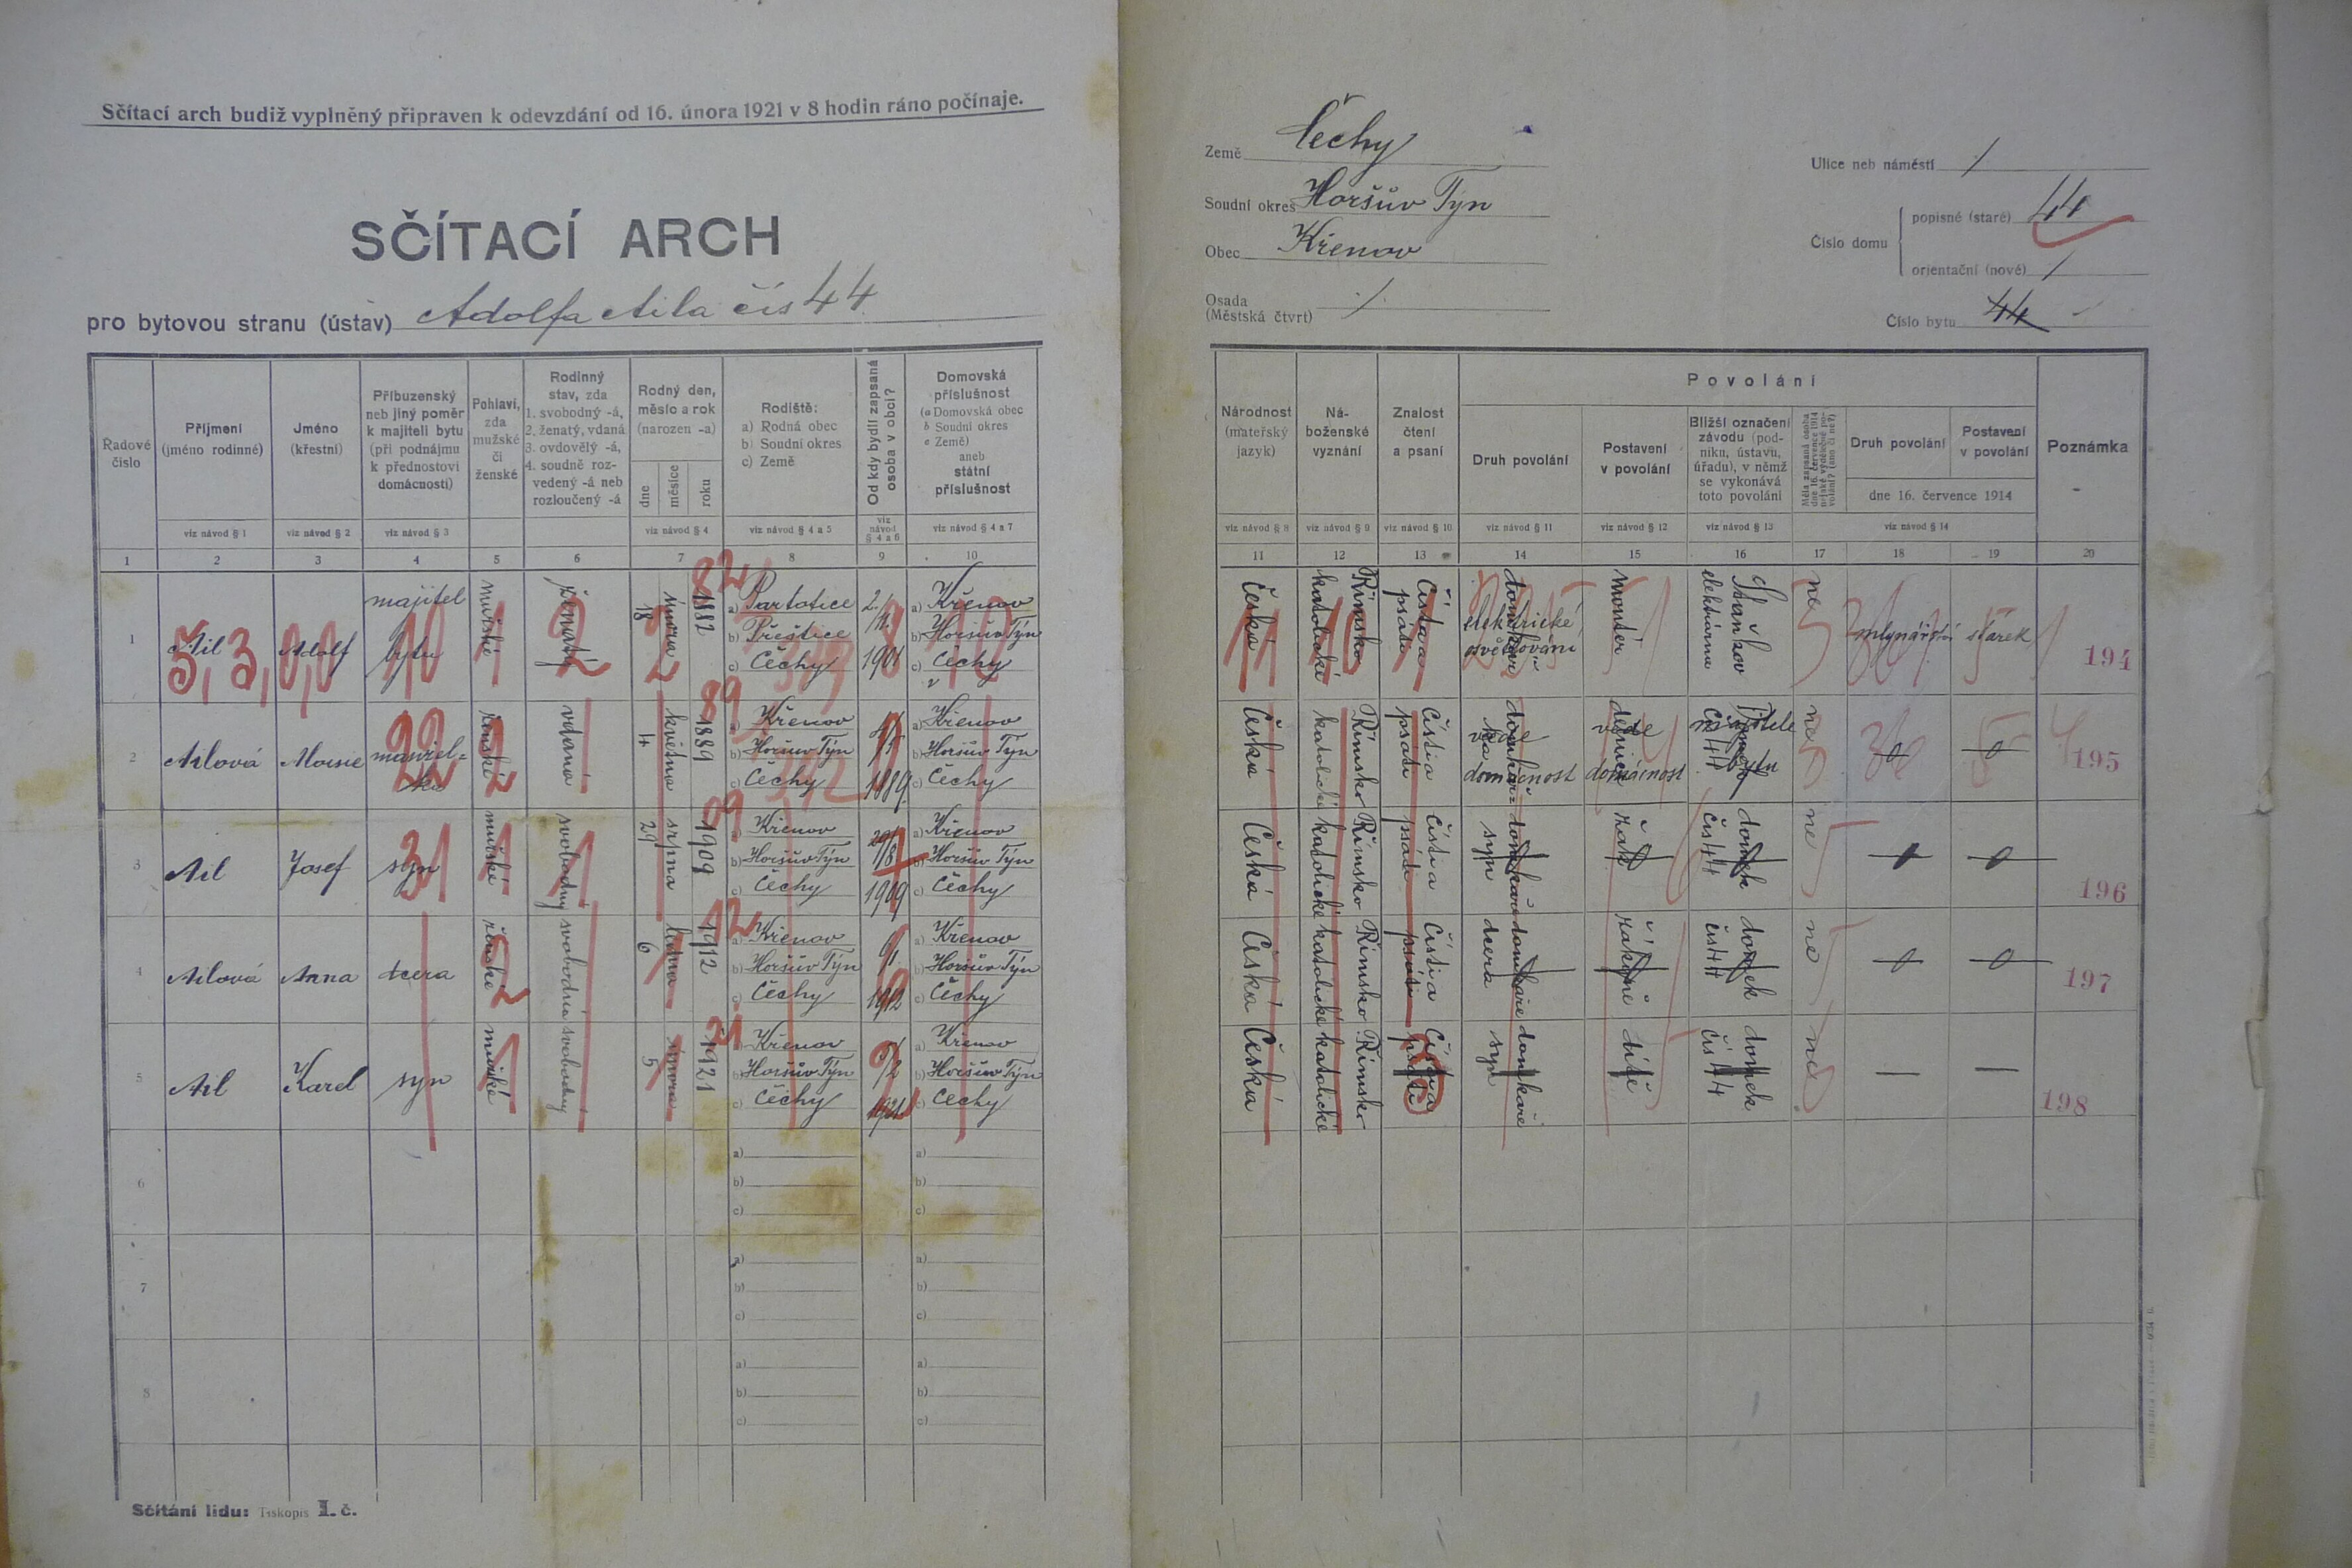 Sčítací arch budiž vyplněný připraven k odevzdání od 16. února 1921 v 8 hodin ráno počínaje.
SČÍTACÍ ARCH
pro bytovou stranu (ústav) Adolfa Aila čís 44
Řadové číslo
Příjmení
(jméno rodinné)
Jméno
(křestní)
Příbuzenský
neb jiný poměr
k majiteli bytu
(při podnájmu
k přednostovi
domácnosti)
Pohlaví,
zda
mužské
či
ženské
Rodinný
stav, zda
1. svobodný -á,
2. ženatý, vdaná
3. ovdovělý -á,
4. soudně roz-
vedený -á neb
rozloučený -á
Rodný den,
měsíc a rok
(narozen -a)
dne
měsíce
roku
Rodiště:
a) Rodná obec
b) Soudní okres
c) Země
Od kdy bydlí zapsaná
osoba v obci?
Domovská
příslušnost
(a Domovská obec
b Soudní okres
c Země)
aneb
státní
příslušnost
viz návod § 1
viz návod § 2
viz návod § 3
viz návod § 4
viz návod § 4 a 5
viz návod § 4 a 6
viz návod § 4 a 7
1 2 3 4 5 6 7 8 9 10
1 Ail Adolf majitel bytu mužské ženatý 18 února 1882
a) b) Přeštice c) Čechy
1901
a) Křenov b) Horšův Týn c) Čechy
5, 3, 0, 0
2 Ailová manžel-
ka ženské vdaná 14 května 1889
a) Křenov b) Horšův Týn c) Čechy
1889
a) Křenov b) Horšův Týn c) Čechy
3 Ail Josef syn mužské svobodný 29 srpna 1909
a) Křenov b) Horšův Týn c) Čechy
29/8 1909
a) Křenov b) Horšův Týn c) Čechy
4 Ailová Anna dcera ženské svobodná 6 ledna 1912
a) Křenov b) Horšův Týn c) Čechy
6/1 1912
a) Křenov b) Horšův Týn c) Čechy
5 Ail Karel syn mužské svobodný 5 února 1921
a) Křenov b) Horšův Týn c) Čechy
5/2 1921
a) Křenov b) Horšův Týn c) Čechy
6 a) b) c) a) b) c)
7 a) b) c) a) b) c)
8 a) b) c) a) b) c)
Sčítání lidu: Tiskopis I. č.
Země Čechy
Soudní okres Horšův Týn
Obec Křenov
Osada
(Městská čtvrt) /
Ulice neb náměstí /
Číslo domu
popisné (staré) 44
orientační (nové) /
Číslo bytu 44
Národnost
(mateřský
jazyk)
Ná-
boženské
vyznání
Znalost
čtení
a psaní
Povolání
Druh povolání
Postavení
v povolání
Bližší označení
závodu (pod-
niku, ústavu,
úřadu), v němž
se vykonává
toto povolání
Druh povolání
Postavení
v povolání
dne 16. července 1914
Poznámka
viz návod § 8
viz návod § 9
viz návod § 10
viz návod § 11
viz návod § 12
viz návod § 13
viz návod § 14
11 12 13 14 15 16 17 18 19 20
Česká Římsko katolické Čísti a psáti domkář elektrické osvětlování montér Staňkov elektrárna ne mlynářství stárek 194
Česká Římsko katolické Čísti a psáti vede domácnost ne 0 0 195
Česká Římsko katolické Čísti a psáti syn domkáře žák domek čís 44 ne 0 0 196
Česká Římsko katolické Čísti a psáti dcera domkáře žákyně domek čís 44 ne 0 0 197
Česká Římsko katolické syn domkáře dítě domek čís 44 ne — — 198